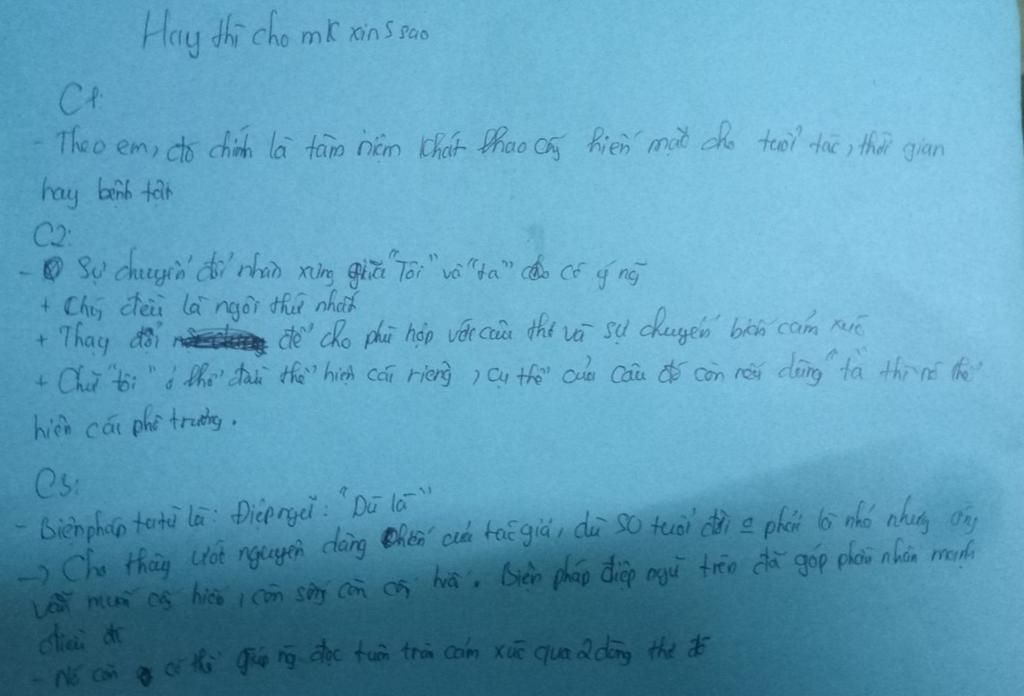 Hay thì cho mk xin 5 sao
C1:
- Theo em, đó chính là tâm niệm khát khao cống hiến mặc cho tuổi tác, thời gian
hay bệnh tật
C2:
- Sự chuyển đổi nhân xưng giữa "Tôi" và "ta" có ý ng
+ Chúng đều là ngôi thứ nhất
+ Thay đổi để cho phù hợp với câu thơ và sự chuyển biến cảm xúc
+ Chữ "tôi" ở khổ đầu thể hiện cái riêng, cụ thể của câu đó còn nếu dùng "ta" thì nó thể
hiện cái phô trương.
C3:
- Biện pháp tu từ là: Điệp ngữ: "Dù là"
-> Cho thấy ước nguyện dâng hiến của tác giả, dù số tuổi đời phải là nhỏ nhưng ông
vẫn muốn cống hiến, còn sống còn cống hiến. Biện pháp điệp ngữ trên đã góp phần nhấn mạnh
điều đó
- Nó còn có thể giúp ng đọc tuôn trào cảm xúc qua 2 dòng thơ đó